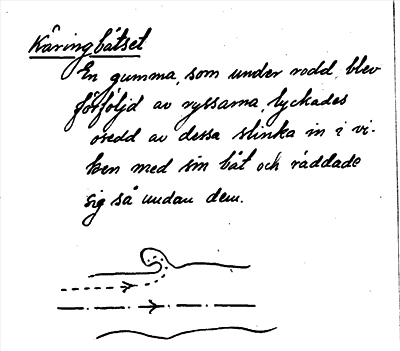 Käringbåtset
En gumma, som under rodd, blev
förföljd av ryssarna, lyckades
osedd av dessa slinka in i vi-
ken med sin båt och räddade
sig så undan dem.